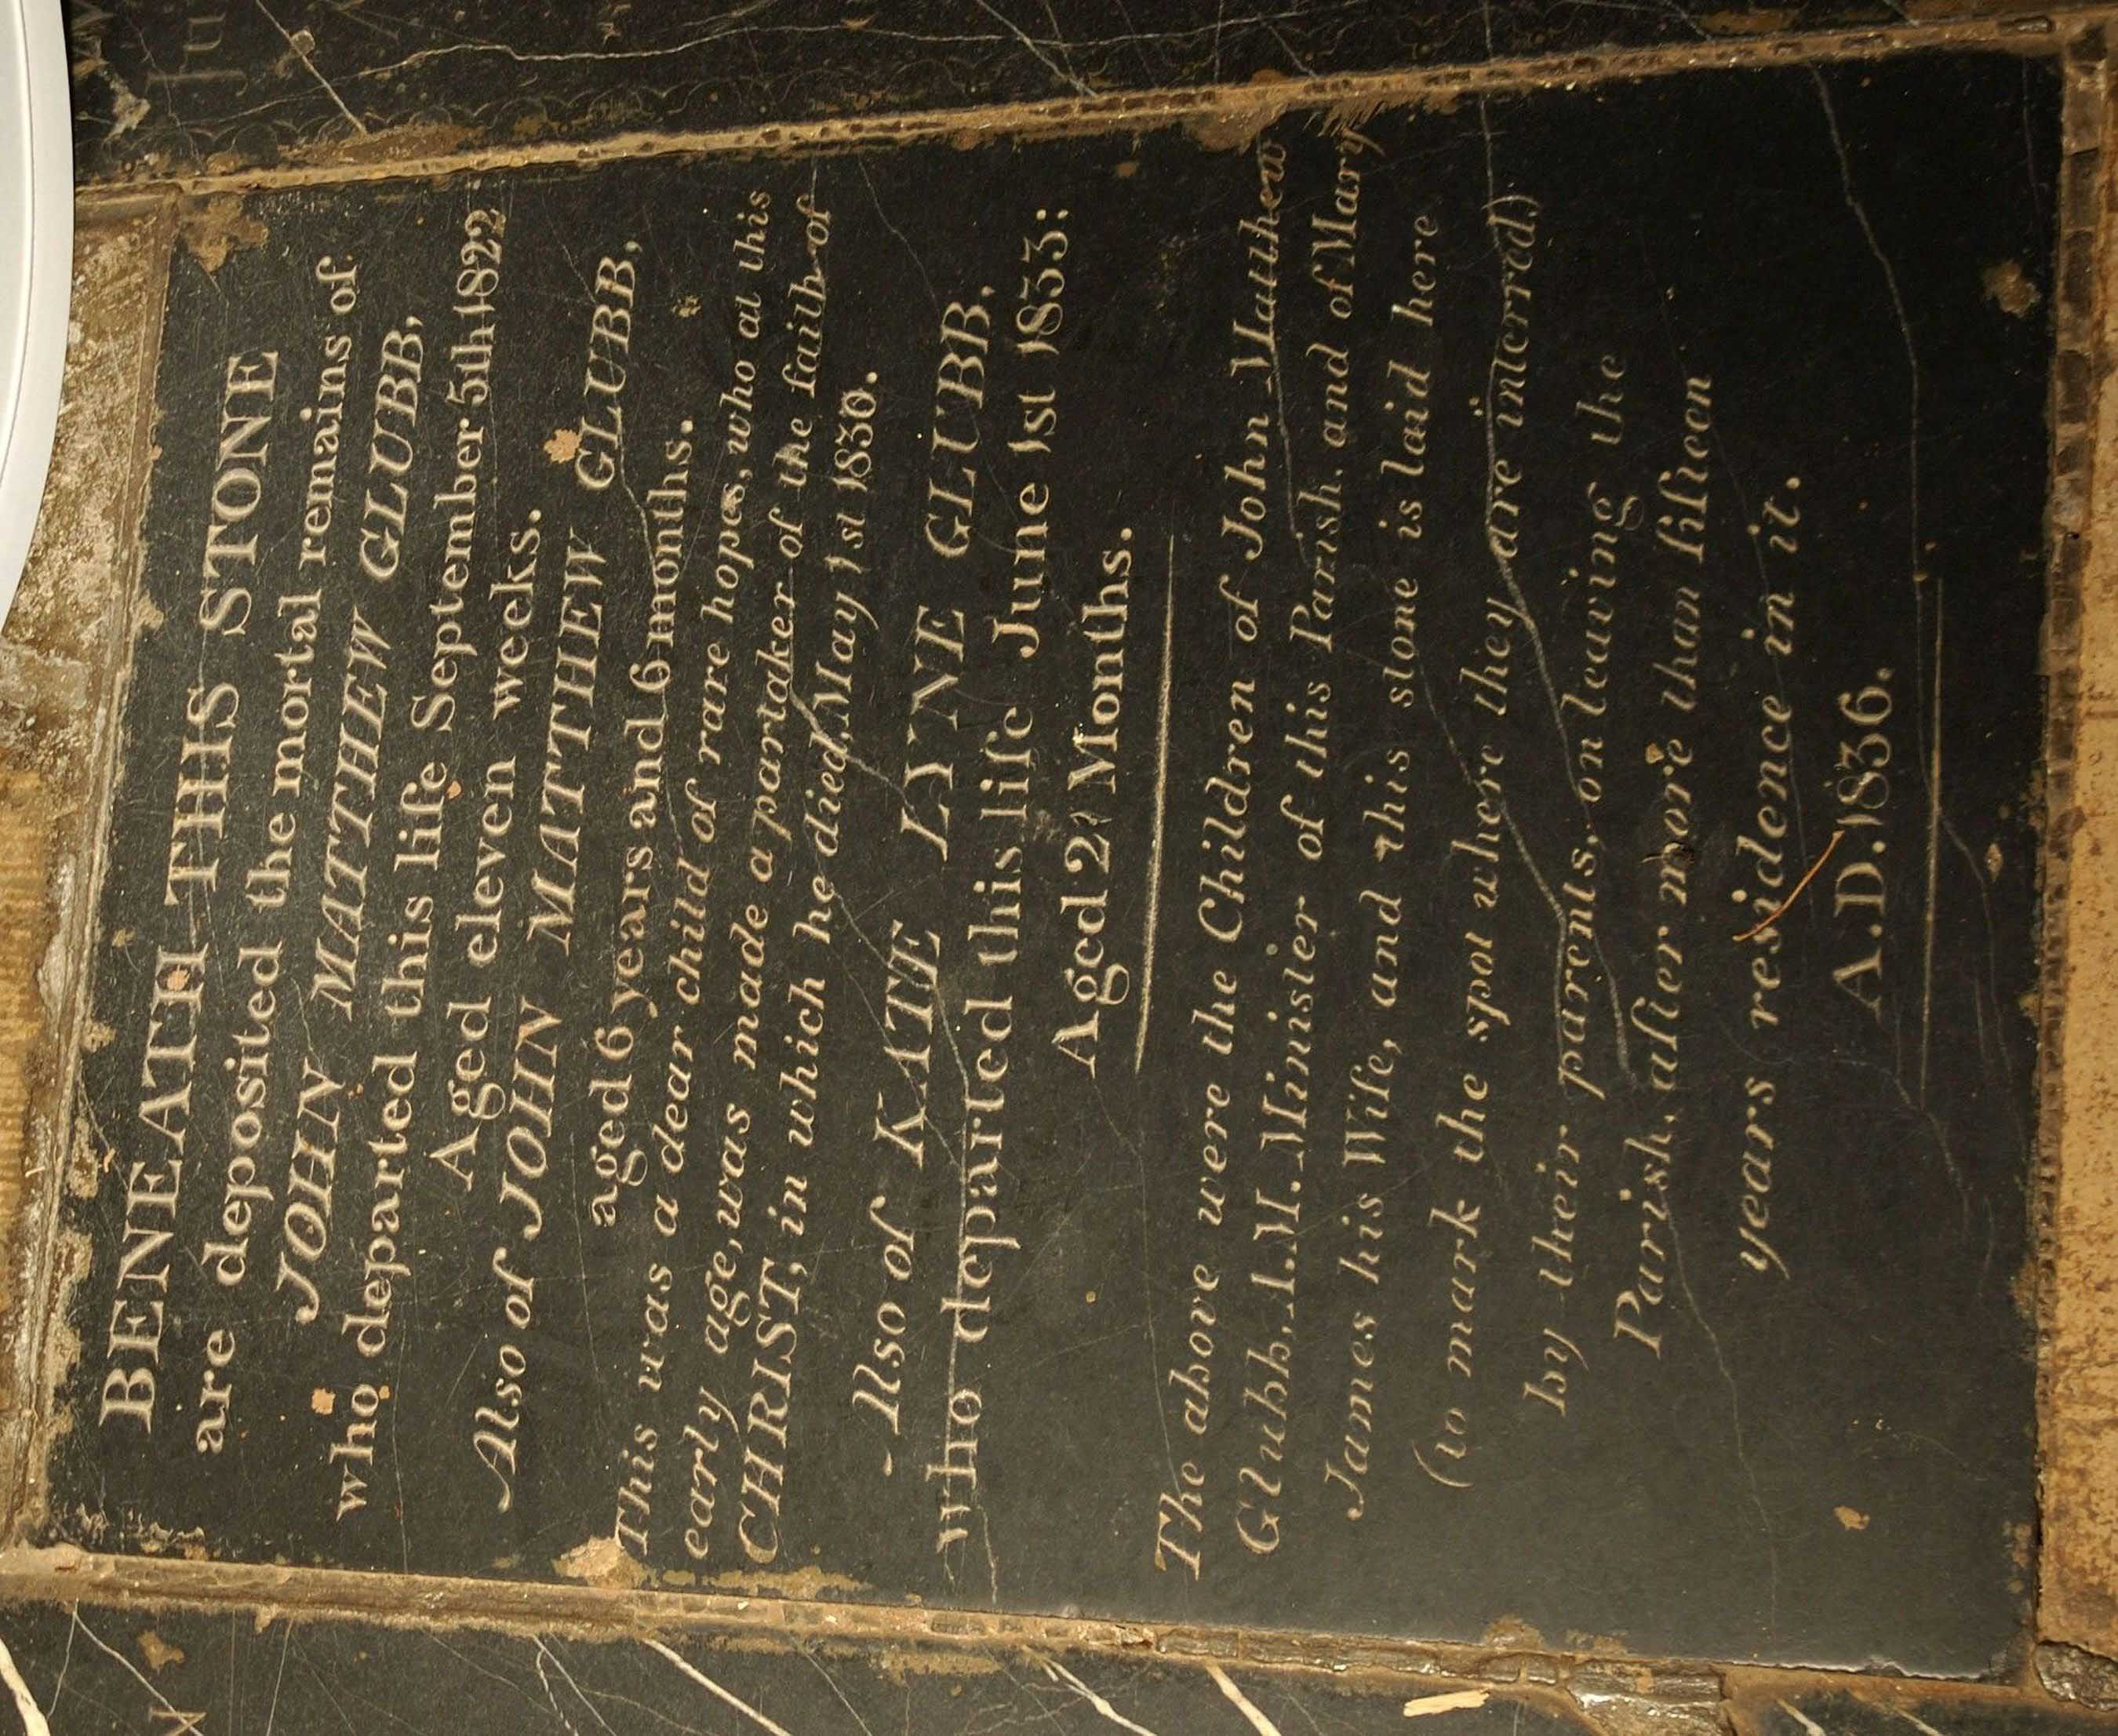 BENEATH THIS STONE
are deposited the mortal remains of
JOHN MATTHEW GLUBB,
who departed this life September 5th 1822
Aged eleven weeks.
Also of JOHN MATTHEW GLUBB,
aged 6 years and 6 months.
This was a dear child of rare hopes, who at this
early age, was made a partaker of the faith of
CHRIST, in which he died, May 1st 1830.
Also of KATE LYNE GLUBB,
who departed this life June 1st 1833:
Aged Months.
The above were the Children of John Matthew
Glubb, A.M. Minister of this Parish, and of Mary
James his Wife, and this stone is laid here
(to mark the spot where they are interred)
by their parents, on leaving the
Parish, after more than fifteen
years residence in it.
A.D. 1836.